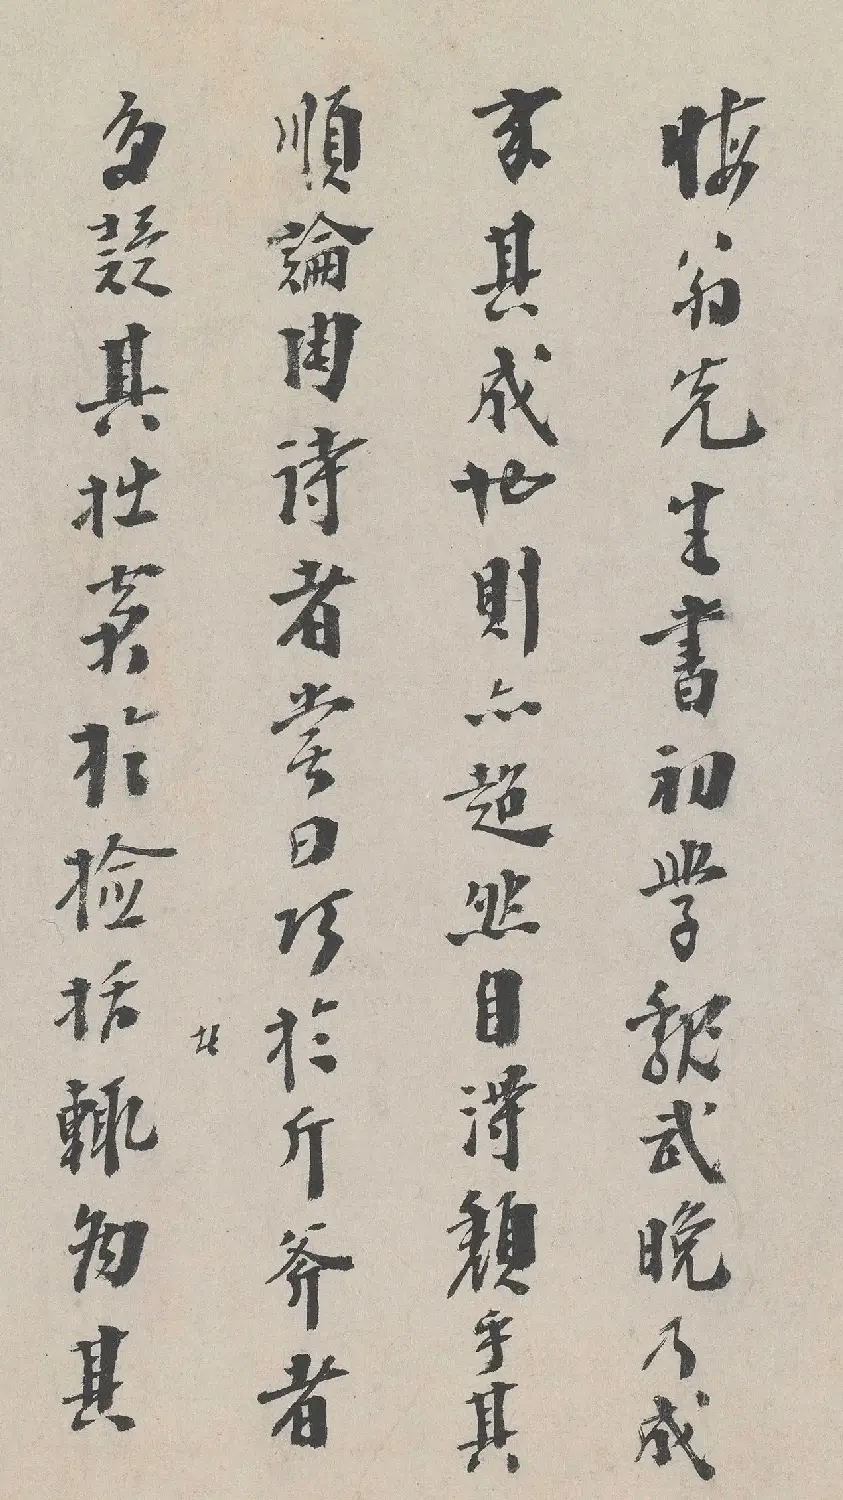 晦翁先生書初學魏武晚乃成
家其成也則亦超然自得頹乎其
順論陶詩者嘗曰巧於斤斧者
多疑其拙窘於檢括輒為其